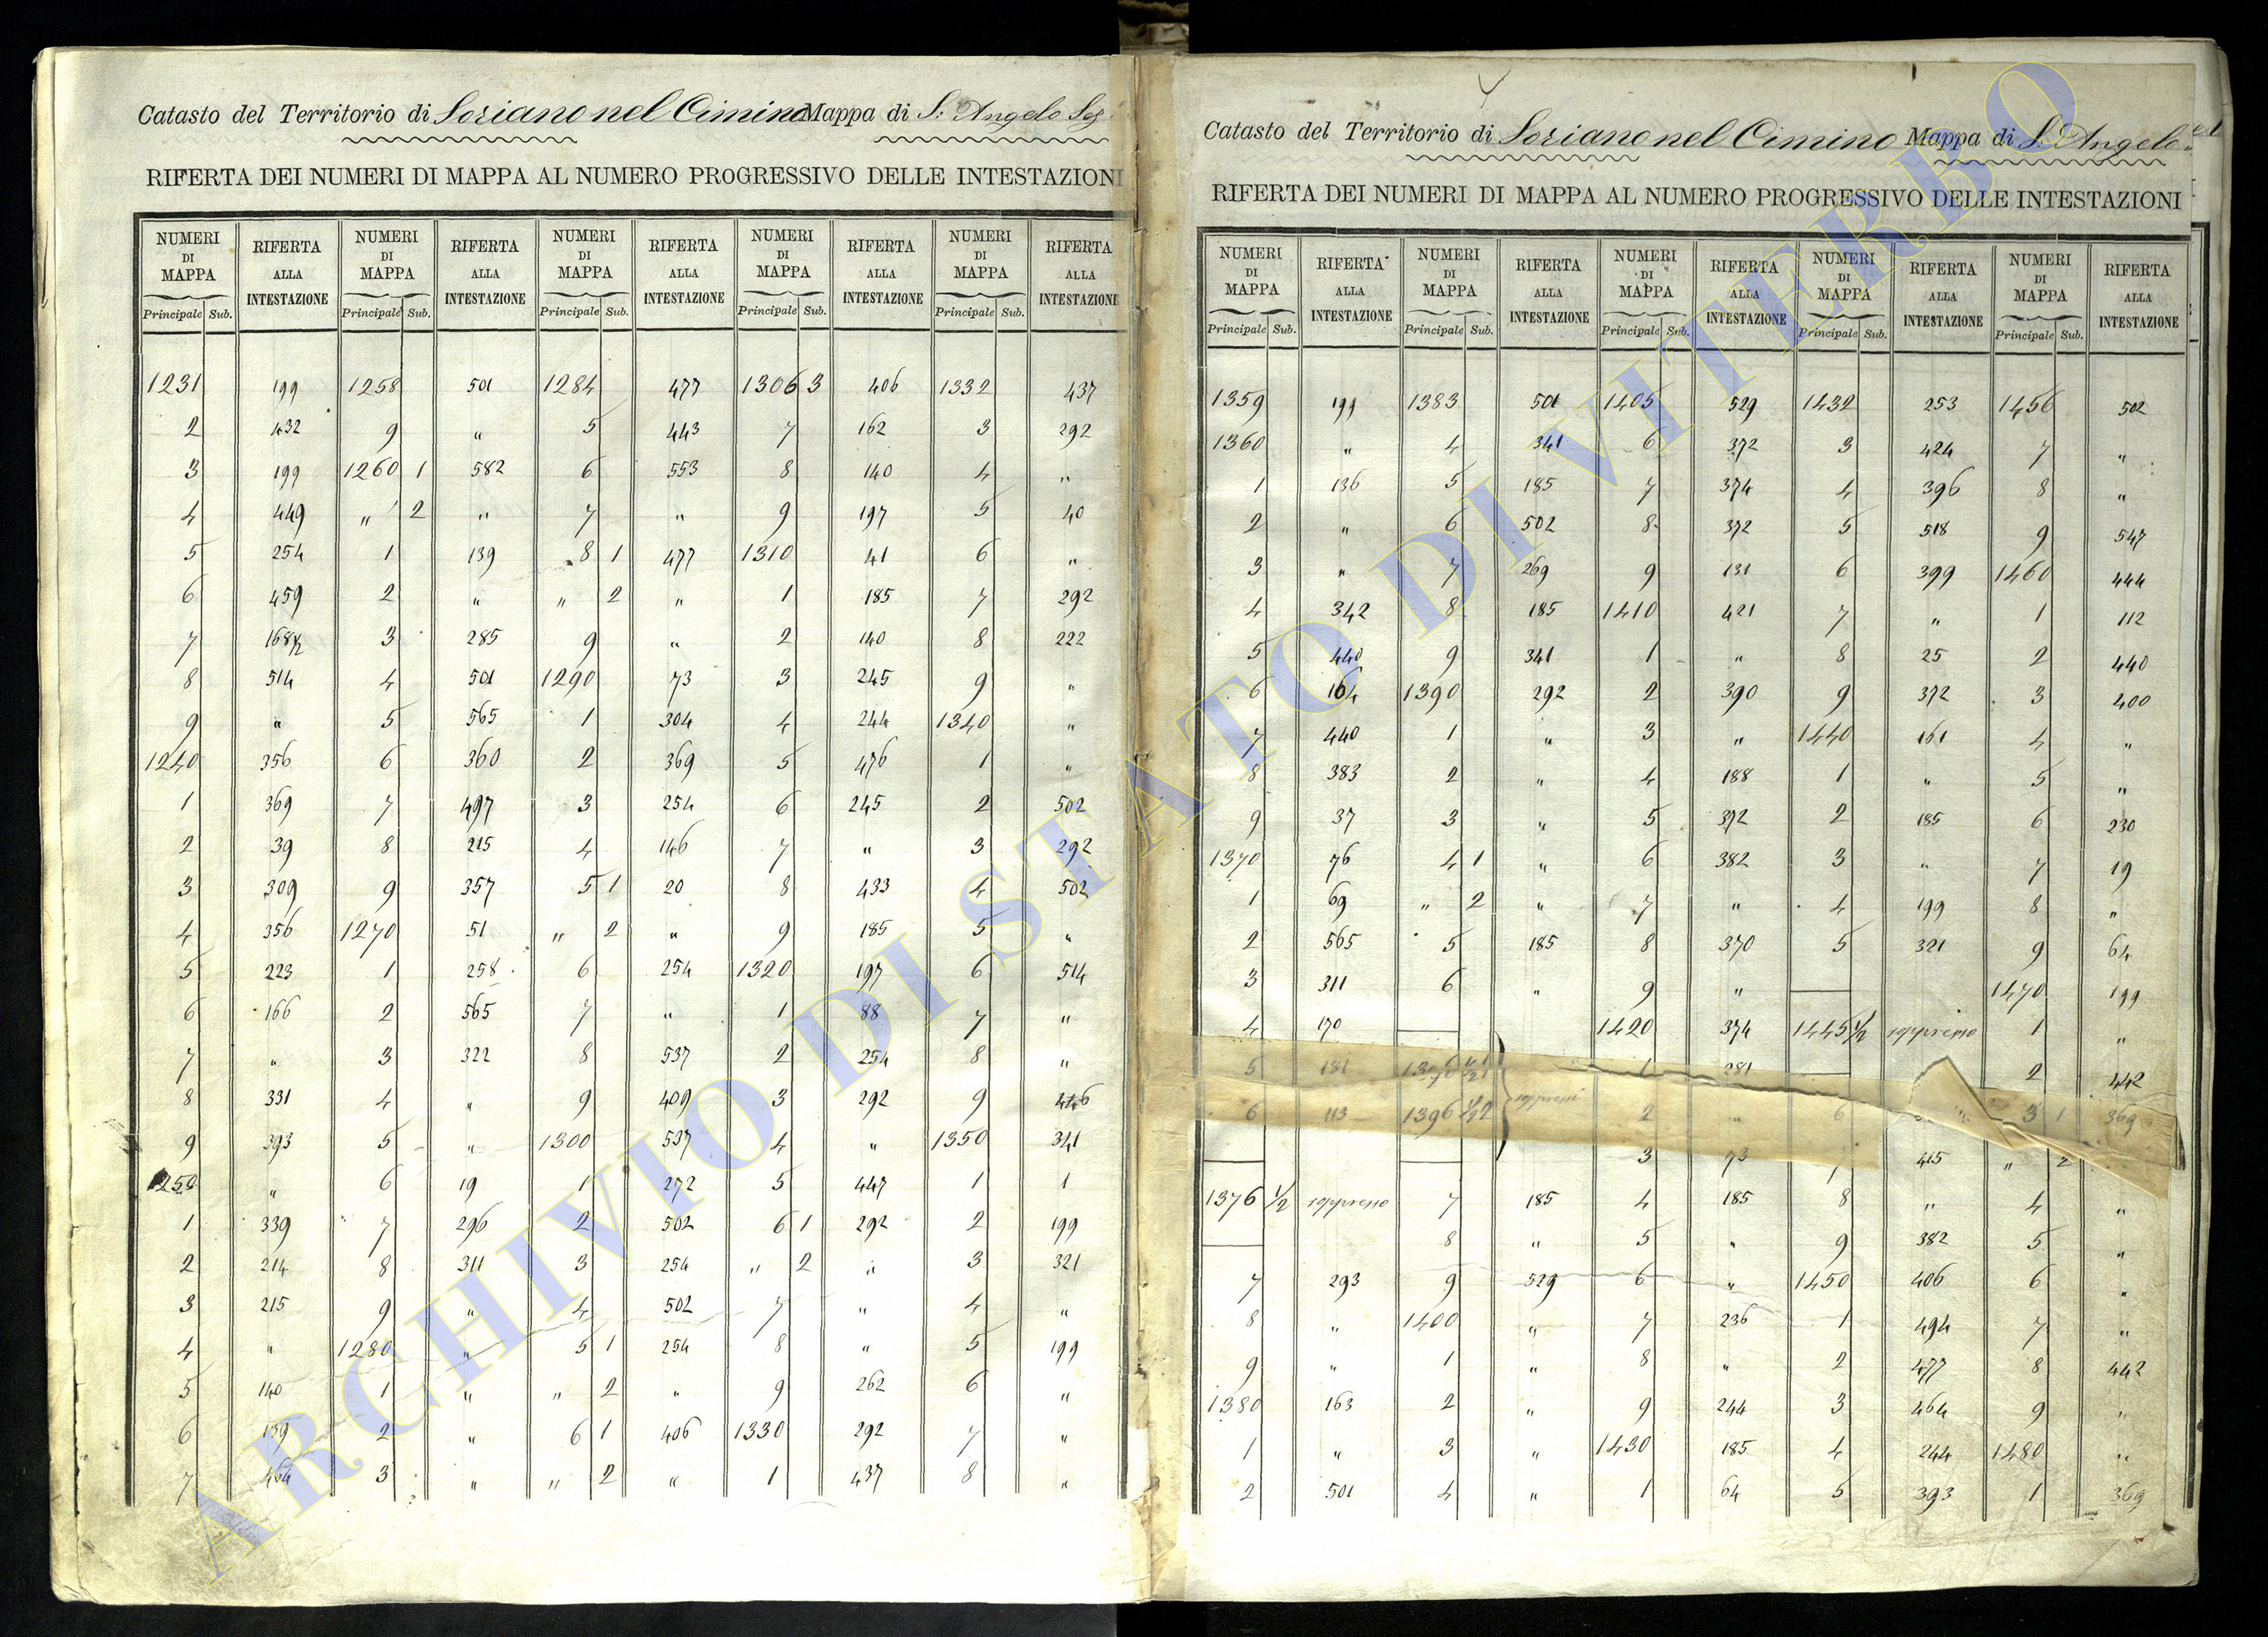 Catasto del Territorio di Soriano nel Cimino Mappa di S. Angelo
RIFERTA DEI NUMERI DI MAPPA AL NUMERO PROGRESSIVO DELLE INTESTAZIONI
NUMERI DI MAPPA RIFERTA ALLA INTESTAZIONE NUMERI DI MAPPA RIFERTA ALLA INTESTAZIONE NUMERI DI MAPPA RIFERTA ALLA INTESTAZIONE NUMERI DI MAPPA RIFERTA ALLA INTESTAZIONE NUMERI DI MAPPA RIFERTA ALLA INTESTAZIONE
Principale Sub. Principale Sub. Principale Sub. Principale Sub. Principale Sub.
1231 199 1258 501 1284 477 1306 3 406 1332 437
2 432 9 " 5 443 7 162 3 292
3 199 1260 1 582 6 553 8 140 4 "
4 449 " 2 " 7 " 9 197 5 40
5 254 1 139 8 1 477 1310 41 6 "
6 459 2 " " 2 " 1 185 7 292
7 168 1/2 3 285 9 " 2 140 8 222
8 514 4 501 1290 73 3 245 9 "
9 " 5 565 1 304 4 244 1340 "
1240 356 6 360 2 369 5 476 1 "
1 369 7 497 3 254 6 245 2 502
2 39 8 215 4 146 7 " 3 292
3 309 9 357 5 1 20 8 433 4 502
4 356 1270 51 " 2 " 9 185 5 "
5 223 1 258 6 254 1320 197 6 514
6 166 2 565 7 " 1 88 7 "
7 " 3 322 8 537 2 254 8 "
8 331 4 " 9 409 3 292 9 446
9 393 5 " 1300 537 4 " 1350 341
1250 " 6 19 1 272 5 447 1 1
1 339 7 296 2 502 6 1 292 2 199
2 214 8 311 3 254 " 2 " 3 321
3 215 9 " 4 502 7 " 4 "
4 " 1280 " 5 1 254 8 " 5 199
5 140 1 " " 2 " 9 262 6 "
6 139 2 " 6 1 406 1330 292 7 "
7 464 3 " " 2 " 1 437 8 "
Catasto del Territorio di Soriano nel Cimino Mappa di S. Angelo
RIFERTA DEI NUMERI DI MAPPA AL NUMERO PROGRESSIVO DELLE INTESTAZIONI
NUMERI DI MAPPA RIFERTA ALLA INTESTAZIONE NUMERI DI MAPPA RIFERTA ALLA INTESTAZIONE NUMERI DI MAPPA RIFERTA ALLA INTESTAZIONE NUMERI DI MAPPA RIFERTA ALLA INTESTAZIONE NUMERI DI MAPPA RIFERTA ALLA INTESTAZIONE
Principale Sub. Principale Sub. Principale Sub. Principale Sub. Principale Sub.
1359 199 1383 501 1405 529 1432 253 1456 502
1360 " 4 341 6 372 3 424 7 "
1 136 5 185 7 374 4 396 8 "
2 " 6 502 8 372 5 518 9 547
3 " 7 269 9 131 6 399 1460 444
4 342 8 185 1410 421 7 " 1 112
5 440 9 341 1 " 8 25 2 440
6 164 1390 292 2 390 9 372 3 400
7 440 1 " 3 " 1440 161 4 "
8 383 2 " 4 188 1 " 5 "
9 37 3 " 5 392 2 185 6 230
1370 76 4 1 " 6 382 3 " 7 19
1 69 " 2 " 7 " 4 199 8 "
2 565 5 185 8 370 5 321 9 64
3 311 6 " 9 " 1470 199
4 170 1420 374 1445 1/2 soppresso 1 "
5 181 1396 1/2 1 1 281 2 442
6 113 1396 1/2 2 soppressi 2 " 6 3 1 369
3 73 7 415 " 2
1376 1/2 soppresso 7 185 4 185 8 " 4 "
8 " 5 " 9 382 5 "
7 293 9 529 6 " 1450 406 6 "
8 " 1400 " 7 236 1 494 7 "
9 " 1 " 8 " 2 477 8 442
1380 163 2 " 9 244 3 464 9 "
1 " 3 " 1430 185 4 244 1480 "
2 501 4 " 1 64 5 393 1 369
ARCHIVIO DI STATO DI VITERBO